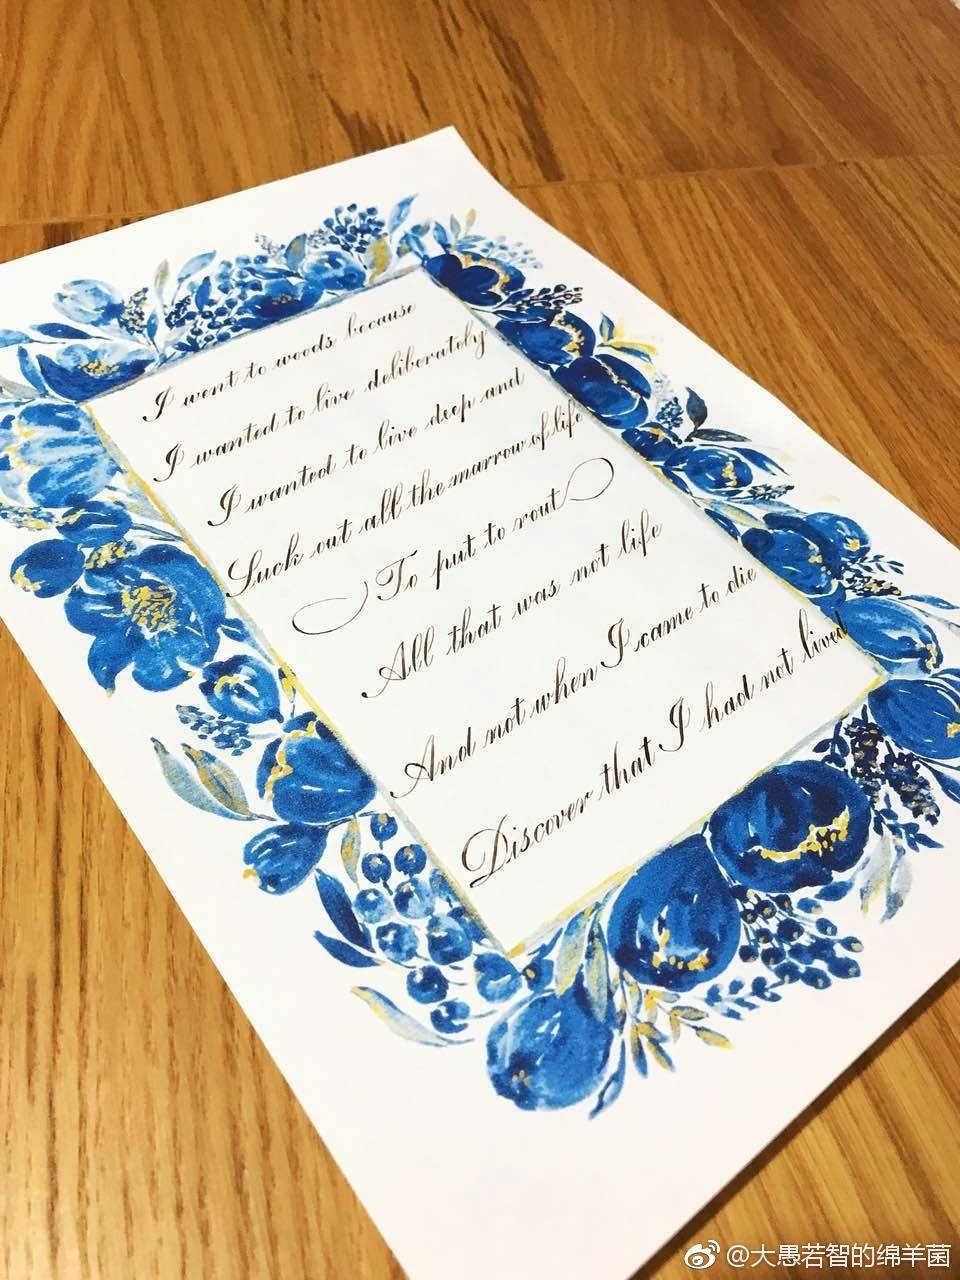 I went to woods because
I wanted to live deliberately
I wanted to live deep and
Suck out all the marrow of life
To put to rout
All that was not life
And not when I came to die
Discover that I had not lived
@大愚若智的绵羊菌